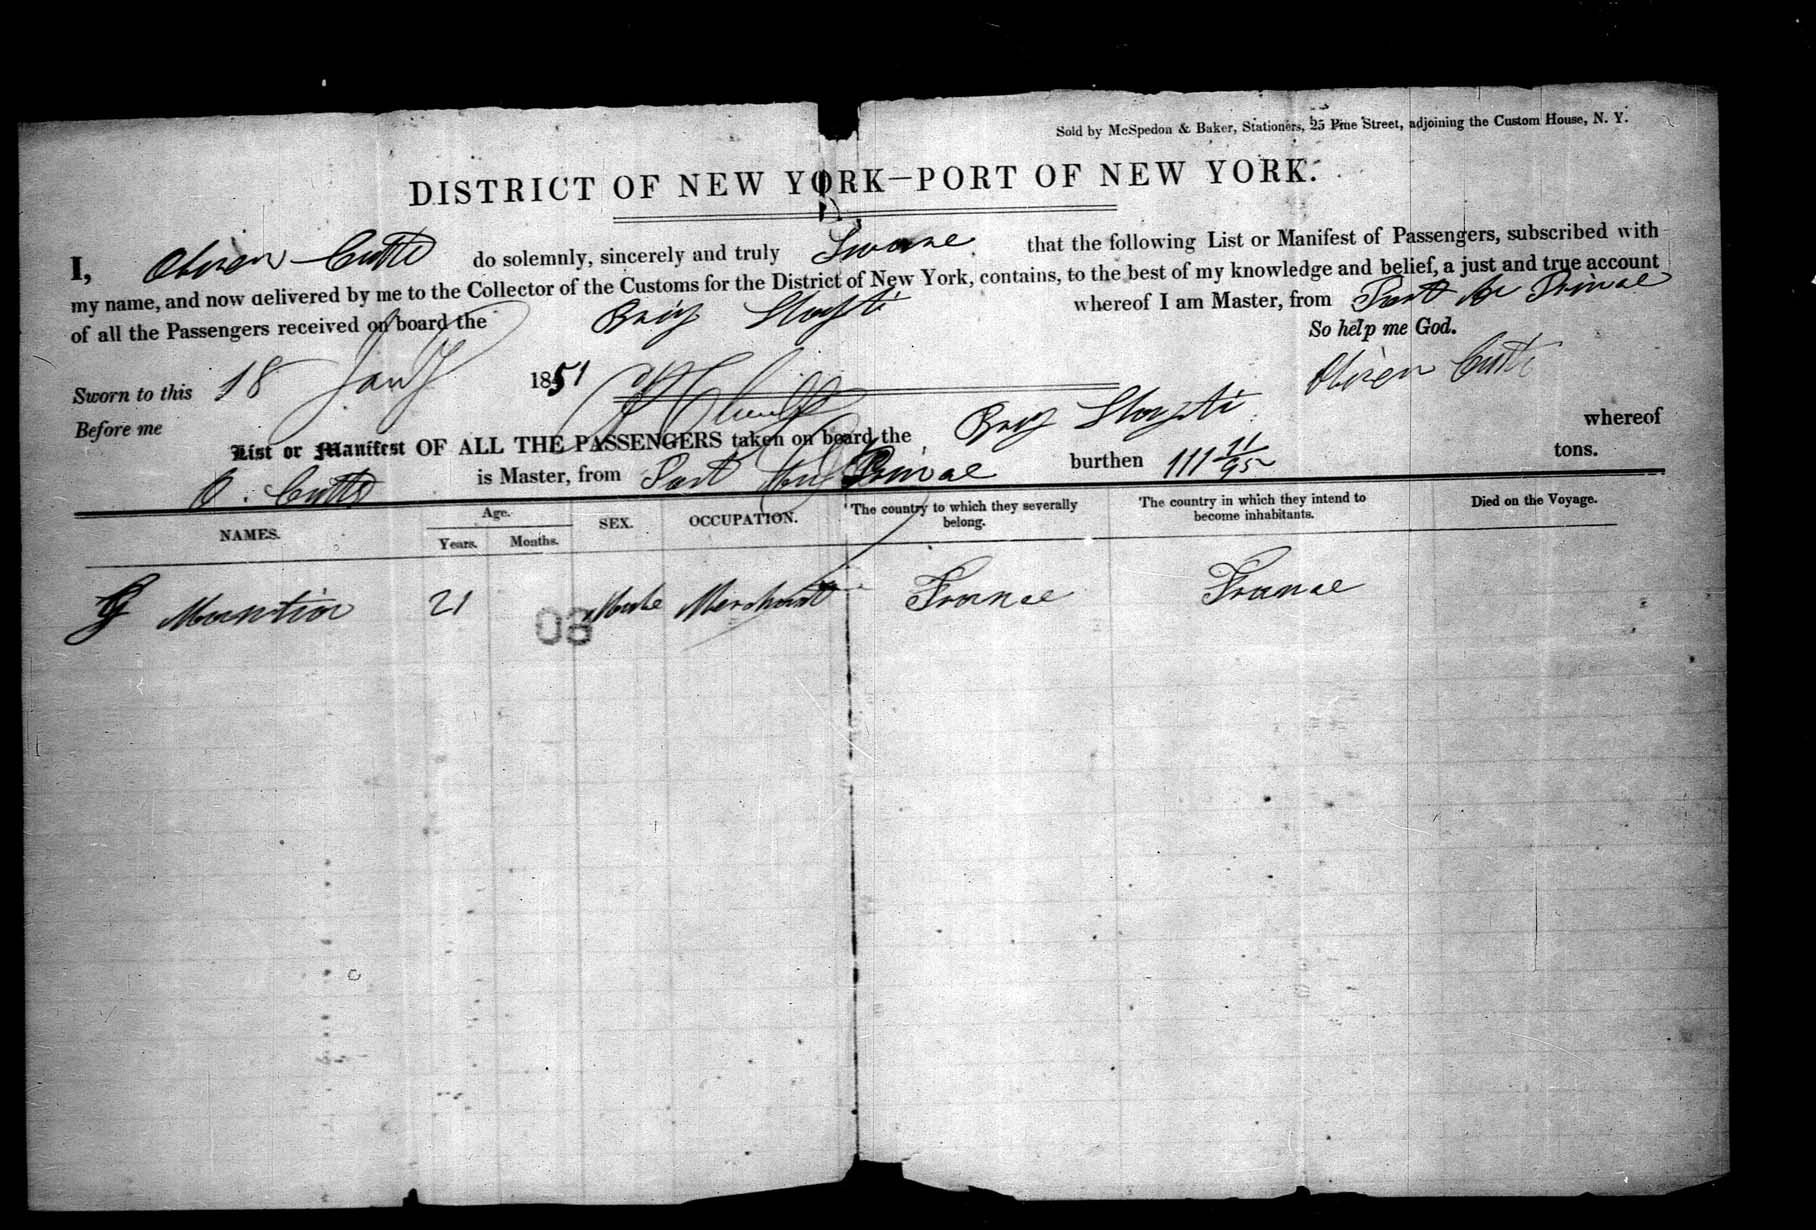 Sold by McSpedon & Baker, Stationers, 25 Pine Street, adjoining the Custom House, N. Y.
DISTRICT OF NEW YORK—PORT OF NEW YORK.
I, Cutts do solemnly, sincerely and truly Sweare that the following List or Manifest of Passengers, subscribed with
my name, and now delivered by me to the Collector of the Customs for the District of New York, contains, to the best of my knowledge and belief, a just and true account
of all the Passengers received on board the Brig Hayti whereof I am Master, from Port Au Prince
So help me God.
Sworn to this 18 Jany 1851
Cutts
Before me
List or Manifest OF ALL THE PASSENGERS taken on board the Brig Hayti whereof
O. Cutts is Master, from Port Au Prince burthen 111 11/95 tons.
NAMES. Age. Years. Months. SEX. OCCUPATION. The country to which they severally belong. The country in which they intend to become inhabitants. Died on the Voyage.
G 21 Male Merchant France France
08